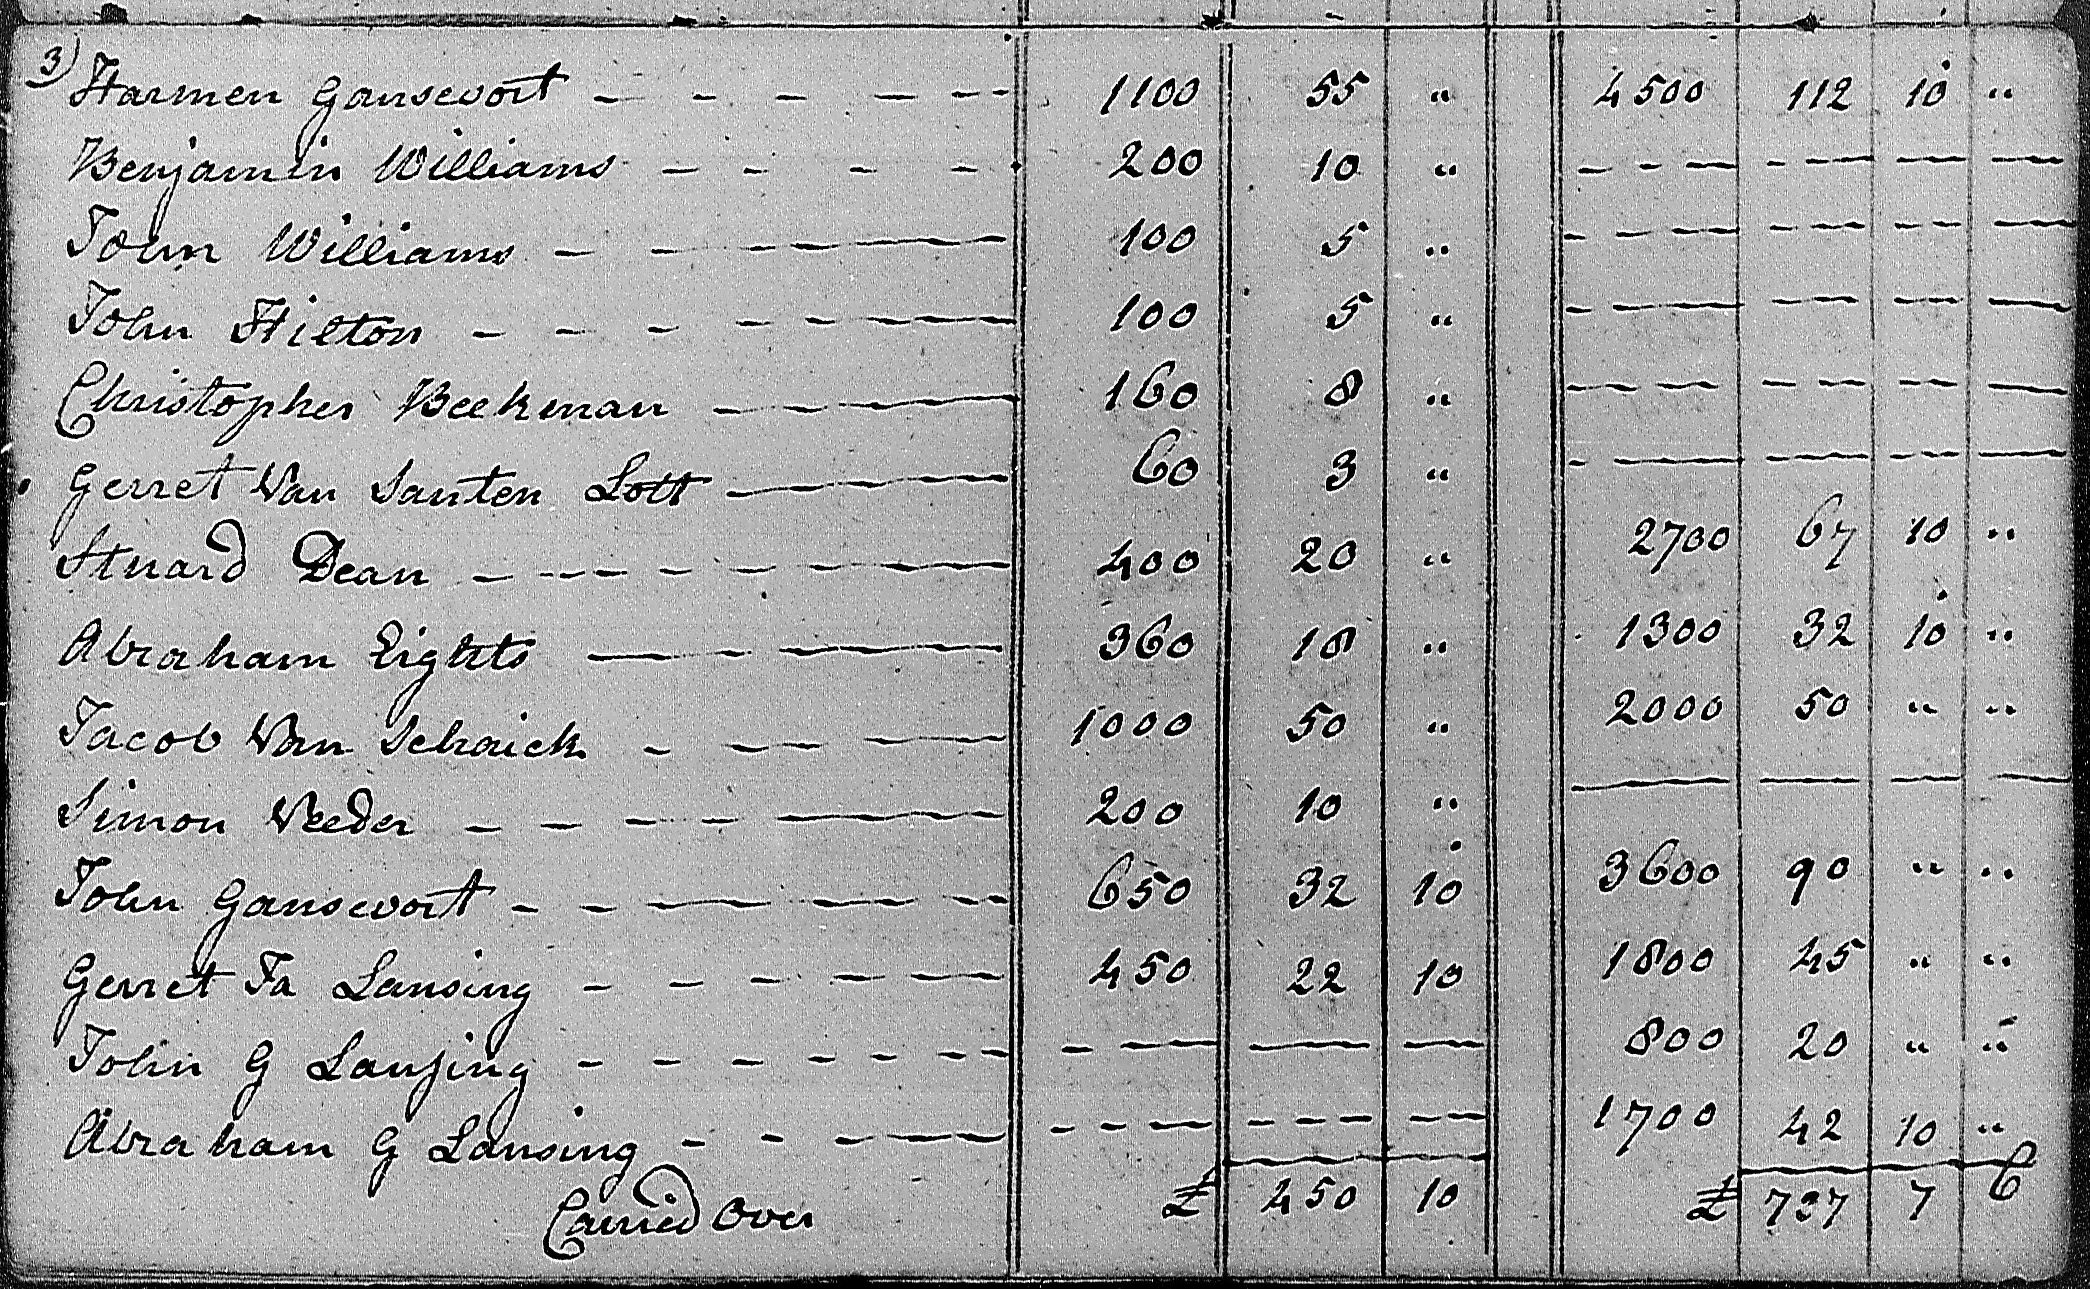 3) Harmen Gansevort - - - - - - 1100 55 " 4500 112 10 "
Benjamin Williams - - - - 200 10 " - - - - - - - - -
John Williams - - - - - 100 5 " - - - - - - - - -
John Hilton - - - - - - 100 5 " - - - - - - -
Christopher Beekman - - - 160 8 " - - - - - - - - -
Gerret Van Santen Lott - - - 60 3 " - - - - - - -
Stuard Dean - - - - - - - 400 20 " 2700 67 10 "
Abraham Eights - - - - 360 18 " 1300 32 10 "
Jacob Van Schaick - - - - 1000 50 " 2000 50 " "
Simon Veeder - - - - - 200 10 " - - - -
John Gansevort - - - - - - 650 32 10 3600 90 " "
Gerret Ja Lansing - - - - - 450 22 10 1800 45 " "
John G Lansing - - - - - - - - - - - 800 20 " "
Abraham G Lansing - - - - - - - - - - - - - 1700 42 10 "
Carried Over £ 450 10 £ 737 7 6